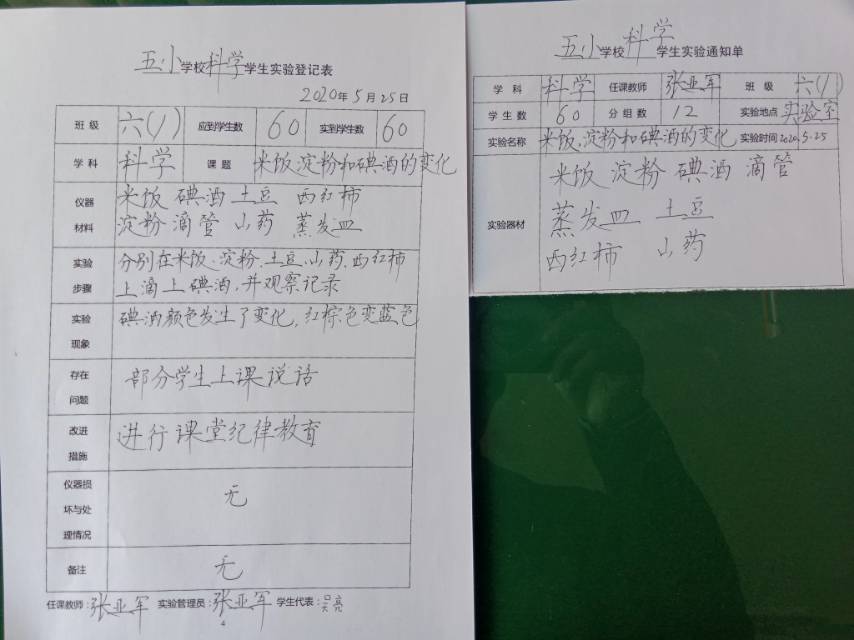 五小学校科学学生实验登记表
2020年5月25日
班级 六(1) 应到学生数 60 实到学生数 60
学科 科学 课题 米饭、淀粉和碘酒的变化
仪器材料 米饭 碘酒 土豆 西红柿
淀粉 滴管 山药 蒸发皿
实验步骤 分别在米饭、淀粉、土豆、山药、西红柿
上滴上碘酒,并观察记录
实验现象 碘酒颜色发生了变化,红棕色变蓝色
存在问题 部分学生上课说话
改进措施 进行课堂纪律教育
仪器损坏与处理情况 无
备注 无
任课教师:张亚军 实验管理员:张亚军 学生代表:吴亮
4
五小学校科学学生实验通知单
学科 科学 任课教师 张亚军 班级 六(1)
学生数 60 分组数 12 实验地点 实验室
实验名称 米饭、淀粉和碘酒的变化 实验时间 2020.5.25
实验器材 米饭 淀粉 碘酒 滴管
蒸发皿 土豆
西红柿 山药